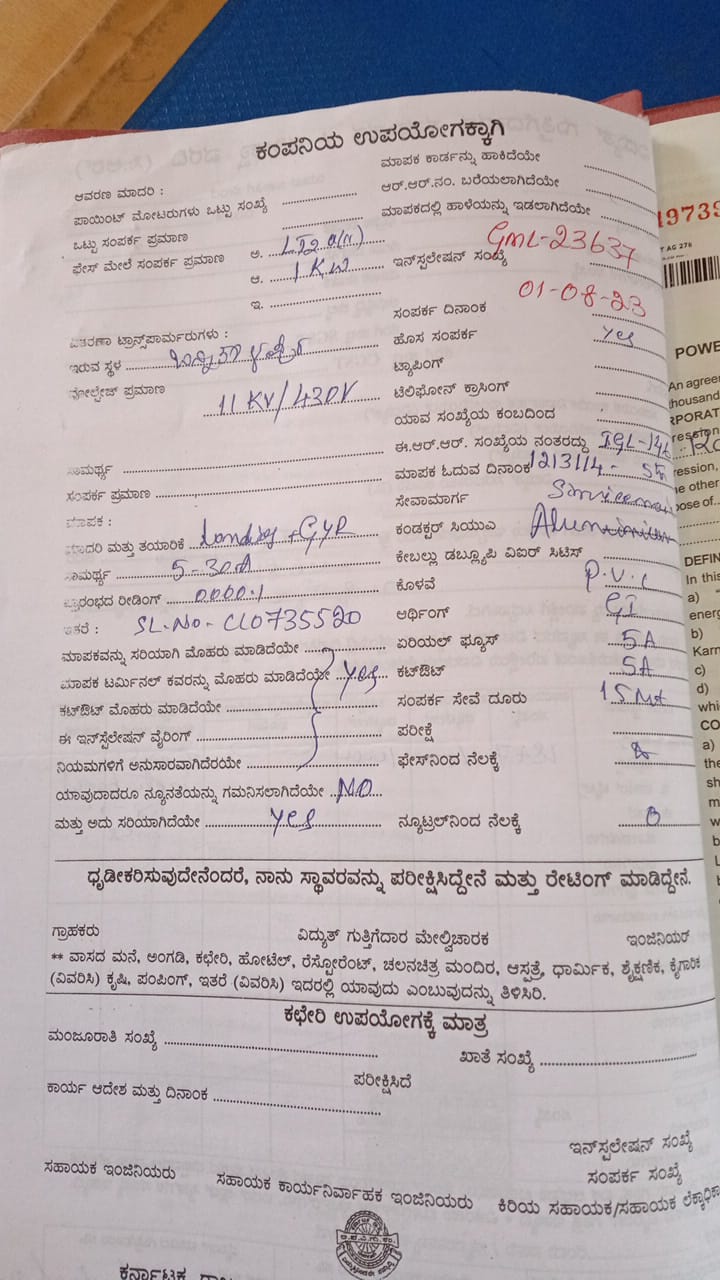 ಕಂಪನಿಯ ಉಪಯೋಗಕ್ಕಾಗಿ
ಆವರಣ ಮಾದರಿ :
ಪಾಯಿಂಟ್ ಮೋಟರುಗಳು ಒಟ್ಟು ಸಂಖ್ಯೆ
ಒಟ್ಟು ಸಂಪರ್ಕ ಪ್ರಮಾಣ
ಫೇಸ್ ಮೇಲೆ ಸಂಪರ್ಕ ಪ್ರಮಾಣ
ಅ. LT2 a(n)
ಆ. 1 KW
ಇ.
ವಿತರಣಾ ಟ್ರಾನ್ಸ್‌ಪಾರ್ಮರುಗಳು :
ಇರುವ ಸ್ಥಳ
ವೋಲ್ಟೇಜ್ ಪ್ರಮಾಣ 11 KV/430V
ಸಾಮರ್ಥ್ಯ
ಸಂಪರ್ಕ ಪ್ರಮಾಣ
ಮಾಪಕ :
ಮಾದರಿ ಮತ್ತು ತಯಾರಿಕೆ Landis + GYR
ಸಾಮರ್ಥ್ಯ 5-30A
ಪ್ರಾರಂಭದ ರೀಡಿಂಗ್ 0000.1
ಇತರೆ : SL.No- CL0735520
ಮಾಪಕವನ್ನು ಸರಿಯಾಗಿ ಮೊಹರು ಮಾಡಿದೆಯೇ
ಮಾಪಕ ಟರ್ಮಿನಲ್ ಕವರನ್ನು ಮೊಹರು ಮಾಡಿದೆಯೇ yes
ಕಟ್‌ಔಟ್ ಮೊಹರು ಮಾಡಿದೆಯೇ
ಈ ಇನ್‌ಸ್ಟಲೇಷನ್ ವೈರಿಂಗ್
ನಿಯಮಗಳಿಗೆ ಅನುಸಾರವಾಗಿದೆರಯೇ
ಯಾವುದಾದರೂ ನ್ಯೂನತೆಯನ್ನು ಗಮನಿಸಲಾಗಿದೆಯೇ NO
ಮತ್ತು ಅದು ಸರಿಯಾಗಿದೆಯೇ yes
ಮಾಪಕ ಕಾರ್ಡನ್ನು ಹಾಕಿದೆಯೇ
ಆರ್.ಆರ್.ನಂ. ಬರೆಯಲಾಗಿದೆಯೇ
ಮಾಪಕದಲ್ಲಿ ಹಾಳೆಯನ್ನು ಇಡಲಾಗಿದೆಯೇ
ಇನ್‌ಸ್ಟಲೇಷನ್ ಸಂಖ್ಯೆ GML-23637
ಸಂಪರ್ಕ ದಿನಾಂಕ 01-08-23
ಹೊಸ ಸಂಪರ್ಕ yes
ಟ್ಯಾಪಿಂಗ್
ಟೆಲಿಫೋನ್ ಕ್ರಾಸಿಂಗ್
ಯಾವ ಸಂಖ್ಯೆಯ ಕಂಬದಿಂದ
ಈ.ಆರ್.ಆರ್. ಸಂಖ್ಯೆಯ ನಂತರದ್ದು
ಮಾಪಕ ಓದುವ ದಿನಾಂಕ
ಸೇವಾಮಾರ್ಗ
ಕಂಡಕ್ಟರ್ ಸಿಯುಎ Aluminium
ಕೇಬಲ್ಲು ಡಬ್ಲ್ಯೂಪಿ ವಿಐರ್ ಸಿಟಿಸ್
ಕೊಳವೆ P.V.C
ಅರ್ಥಿಂಗ್ GI
ಏರಿಯಲ್ ಫ್ಯೂಸ್ 5A
ಕಟ್‌ಔಟ್ 5A
ಸಂಪರ್ಕ ಸೇವೆ ದೂರು 15 Mt
ಪರೀಕ್ಷೆ
ಫೇಸ್‌ನಿಂದ ನೆಲಕ್ಕೆ
ನ್ಯೂಟ್ರಲ್‌ನಿಂದ ನೆಲಕ್ಕೆ
ಧೃಡೀಕರಿಸುವುದೇನೆಂದರೆ, ನಾನು ಸ್ಥಾವರವನ್ನು ಪರೀಕ್ಷಿಸಿದ್ದೇನೆ ಮತ್ತು ರೇಟಿಂಗ್ ಮಾಡಿದ್ದೇನೆ.
ಗ್ರಾಹಕರು ವಿದ್ಯುತ್ ಗುತ್ತಿಗೆದಾರ ಮೇಲ್ವಿಚಾರಕ ಇಂಜಿನಿಯರ್
** ವಾಸದ ಮನೆ, ಅಂಗಡಿ, ಕಛೇರಿ, ಹೋಟೆಲ್, ರೆಸ್ಟೋರೆಂಟ್, ಚಲನಚಿತ್ರ ಮಂದಿರ, ಆಸ್ಪತ್ರೆ, ಧಾರ್ಮಿಕ, ಶೈಕ್ಷಣಿಕ, ಕೈಗಾರಿಕೆ
(ವಿವರಿಸಿ) ಕೃಷಿ, ಪಂಪಿಂಗ್, ಇತರೆ (ವಿವರಿಸಿ) ಇದರಲ್ಲಿ ಯಾವುದು ಎಂಬುವುದನ್ನು ತಿಳಿಸಿರಿ.
ಕಛೇರಿ ಉಪಯೋಗಕ್ಕೆ ಮಾತ್ರ
ಮಂಜೂರಾತಿ ಸಂಖ್ಯೆ ಖಾತೆ ಸಂಖ್ಯೆ
ಪರೀಕ್ಷಿಸಿದೆ
ಕಾರ್ಯ ಆದೇಶ ಮತ್ತು ದಿನಾಂಕ
ಇನ್‌ಸ್ಟಲೇಶನ್ ಸಂಖ್ಯೆ
ಸಂಪರ್ಕ ಸಂಖ್ಯೆ
ಸಹಾಯಕ ಇಂಜಿನಿಯರು ಸಹಾಯಕ ಕಾರ್ಯನಿರ್ವಾಹಕ ಇಂಜಿನಿಯರು ಕಿರಿಯ ಸಹಾಯಕ/ಸಹಾಯಕ
ಕರ್ನಾಟಕ
19739
AG 276
POWE
An agree
DEFIN
In this
a)
energ
b)
Karn
c)
d)
whi
CO
a)
the
sh